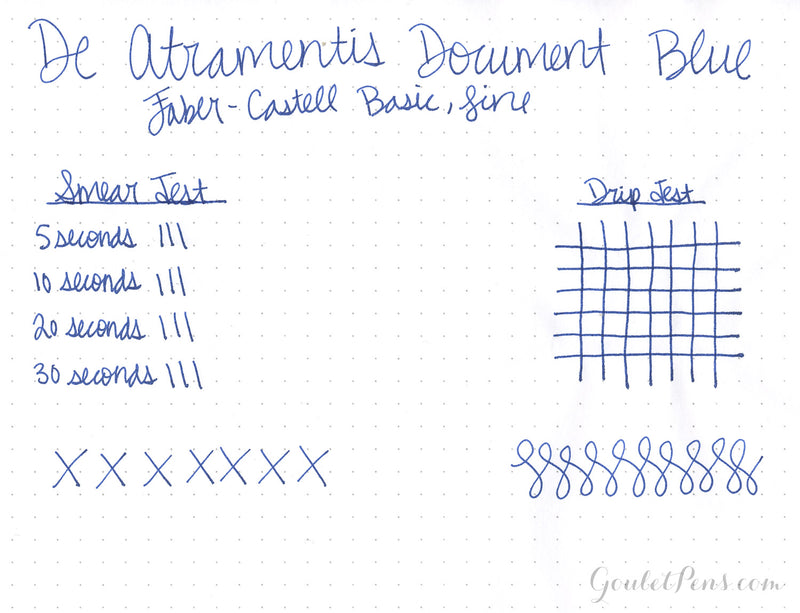 De Atramentis Document Blue
Faber-Castell Basic, fine
Smear Test
5 seconds |||
10 seconds |||
20 seconds |||
30 seconds |||
Drip Test
X X X X X X X
GouletPens.com